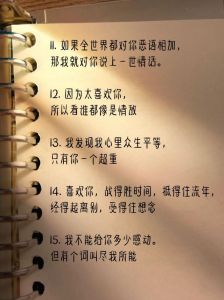 11. 如果全世界都对你恶语相加，
那我就对你说上一世情话。
12. 因为太喜欢你，
所以看谁都像是情敌
13. 我发现我心里众生平等，
只有你一个超重
14. 喜欢你，战得胜时间，抵得住流年，
经得起离别，受得住想念
15. 我不能给你多少感动。
但有个词叫尽我所能